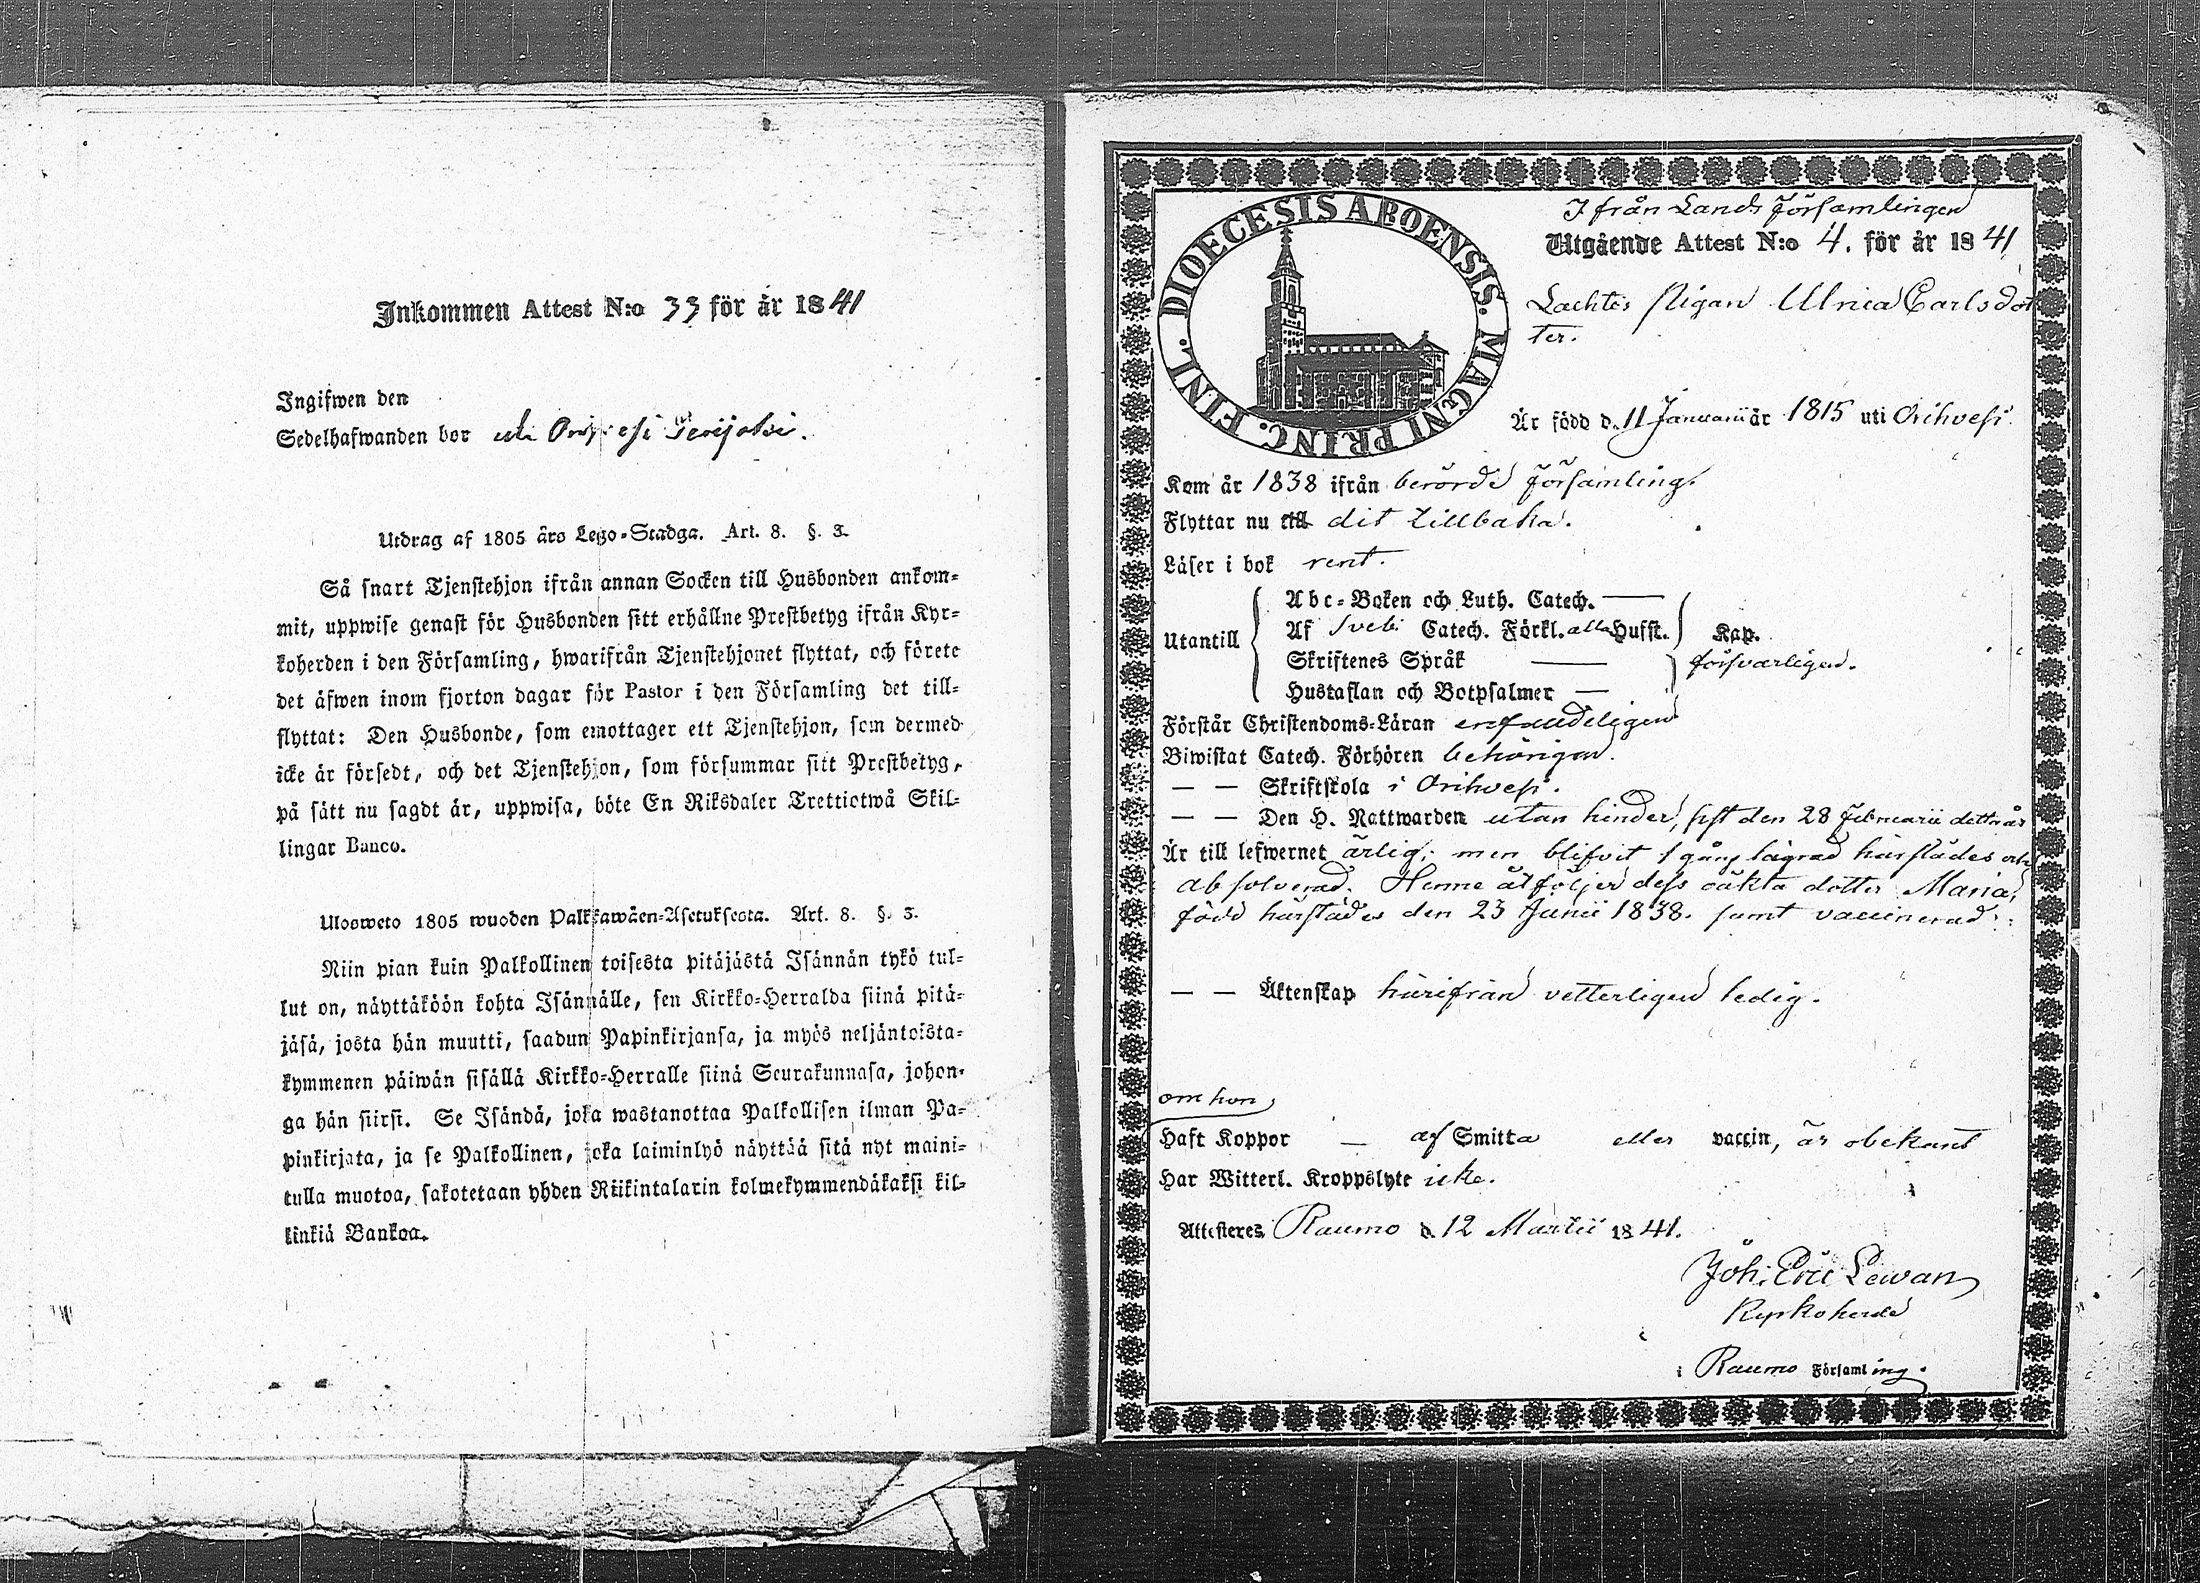 Inkommen Attest N:o 33 för år 1841
Ingifwen den
Sedelhafwanden bor uti
Utdrag af 1805 års Lego-Stadga. Art. 8. §. 3.
Så snart Tjenstehjon ifrån annan Socken till Husbonden ankom-
mit, uppwise genast för Husbonden sitt erhållne Prestbetyg ifrån Kyr-
koherden i den Församling, hwarifrån Tjenstehjonet flyttat, och förete
det äfwen inom fjorton dagar för Pastor i den Församling det till-
flyttat: Den Husbonde, som emottager ett Tjenstehjon, som dermed
icke är försedt, och det Tjenstehjon, som försummar sitt Prestbetyg,
på sätt nu sagdt är, uppwisa, böte En Riksdaler Trettiotwå Skil-
lingar Banco.
Ulosweto 1805 wuoden Palkkawäen-Asetuksesta. Art. 8. §. 3.
Niin pian kuin Palkollinen toisesta pitäjästä Isännän tykö tul-
lut on, näyttäköön kohta Isännälle, sen Kirkko-Herralda siinä pitä-
jäsä, josta hän muutti, saadun Papinkirjansa, ja myös neljäntoista-
kymmenen päiwän sisällä Kirkko-Herralle siinä Seurakunnasa, johon-
ga hän siirsi. Se Isändä, joka wastanottaa Palkollisen ilman Pa-
pinkirjata, ja se Palkollinen, joka laiminlyö näyttää sitä nyt maini-
tulla muotoa, sakotetaan yhden Riikintalarin kolmekymmendäkaksi kil-
linkiä Bankoa.
DIOECESIS ABOENSIS. MAGNI PRINC. FINL.
Ifrån Lands Församlingen
Utgående Attest N:o 4. för år 1841
Lachtis pigan Ulrica Carlsdot
ter.
Är född d. 11 Januarii år 1815 uti Orihvesi.
Kom år 1838 ifrån berörde Församling.
Flyttar nu till dit tillbaka.
Läser i bok rent.
Utantill
Abc-Boken och Luth. Catech. —
Af Svebi. Catech. Förkl. alla Husst. Kap.
Skriftenes Språk — försvarligen.
Hustaflan och Botpsalmer —
Förstår Christendoms-Läran enfaldeligen
Biwistat Catech. Förhören behörigen.
— — Skriftskola i Orihvesi.
— — Den H. Nattwarden utan hinder, sist den 28 Februarii detta år
Är till lefwernet ärlig; men blifvit 1 gång lägrad härstädes och
absolverad. Henne åtföljer dess oäkta dotter Maria,
född härstädes den 23 Junii 1838. samt vaccinerad.
— — Äktenskap härifrån vetterligen ledig.
om hon
Haft Koppor — af Smitta eller vaccin, är obekant
Har Witterl. Kroppslyte icke.
Attesteres Raumo d. 12 Martii 1841.
Joh. Eric Lewan
Kyrkoherde
i Raumo Församling.